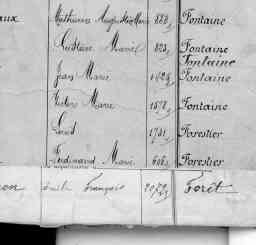 aux Mathurin Auguste Marie 888 Fontaine
Marcel 823 Fontaine
Fontaine
Jean Marie 1428 Fontaine
Victor Marie 1578 Fontaine
Louis 1731 Forestier
Ferdinand Marie 606 Forestier
on Emile François 2072 Forêt